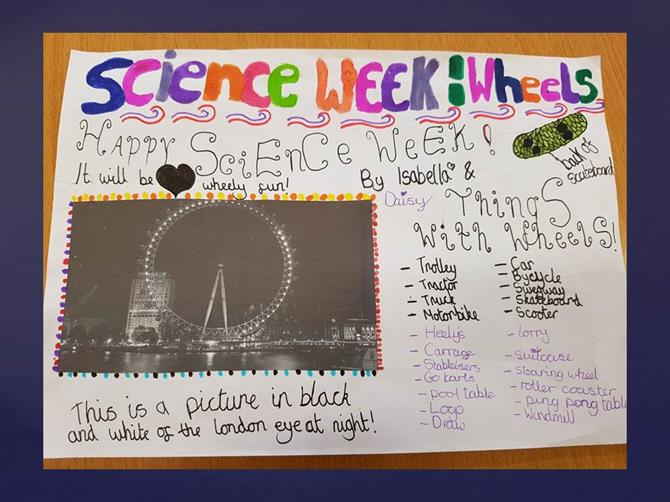 Science Week: Wheels
Happy Science Week!
It will be wheely fun!
By Isabella &
Daisy
back of
scateboard
Things
With Wheels!
- Trolley
- Tractor
- Truck
- Motorbike
- Heelys
- Carrage
- Stableisers
- Go karts
- pool table
- Logo
- Draw
- Car
- Bycycle
- Swegway
- Skateboard
- Scooter
- lorry
- suitcase
- stearing wheel
- roller coaster
- ping pong table
- Windmill
This is a picture in black
and white of the london eye at night!